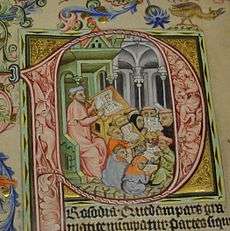 P
Rosodia Quedam pars gra
matice nūcupatur Partes sequ